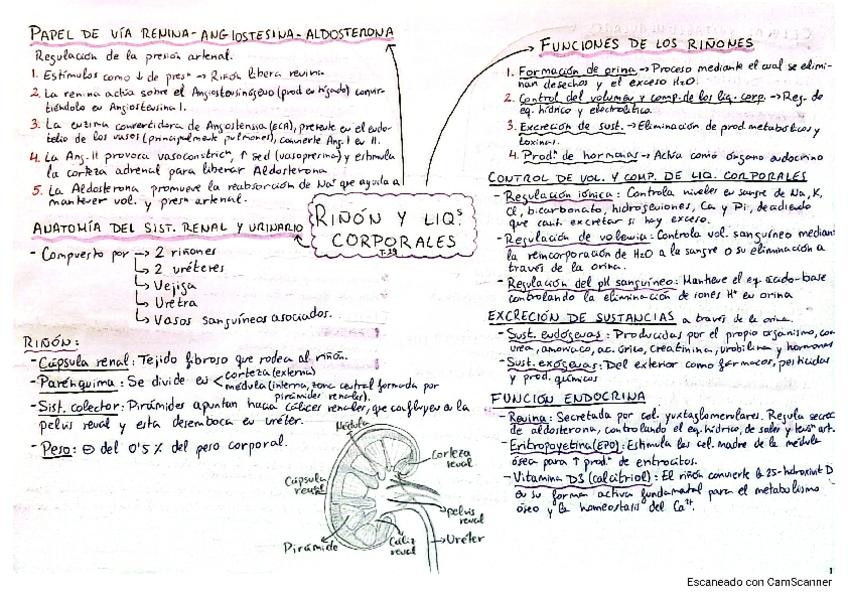 PAPEL DE VÍA RENINA-ANGIOSTESINA-ALDOSTERONA
Regulación de la presión arterial.
1. Estímulos como ↓ de presⁿ → Riñón libera renina.
2. La renina actúa sobre el Angiostensinógeno (prod en hígado) convir-
tiéndolo en Angiostensina I.
3. La enzima convertidora de Angostensina (ECA), presente en el endo-
telio de los vasos (principalmente pulmones), convierte Ang. I en II.
4. La Ang. II provoca vasoconstricⁿ, ↑ sed (vasopresina) y estimula
la corteza adrenal para liberar Aldosterona
5. La Aldosterona promueve la reabsorción de Na⁺ que ayuda a
mantener vol. y presⁿ arterial.
ANATOMÍA DEL SIST. RENAL Y URINARIO
- Compuesto por → 2 riñones
↳ 2 uréteres
↳ Vejiga
↳ Uretra
↳ Vasos sanguíneos asociados.
RIÑÓN:
- Cápsula renal: Tejido fibroso que rodea al riñón.
- Parénquima: Se divide en < corteza (externa)
médula (interna, zona central formada por
pirámides renales).
- Sist. colector: Pirámides apuntan hacia cálices renales, que confluyen a la
pelvis renal y esta desemboca en uréter.
- Peso: ⊖ del 0'5% del peso corporal.
Médula
Corteza
renal
Cápsula
renal
pelvis
renal
Pirámide
Cáliz
renal
Uréter
RIÑÓN Y LIQˢ
CORPORALES
T-29
FUNCIONES DE LOS RIÑONES
1. Formación de orina → Proceso mediante el cual se elimi-
nan desechos y el exceso H₂O.
2. Control del volumen y comp. de los liq. corp. → Reg. de
eq. hídrico y electrolítico.
3. Excreción de sust. → Eliminación de prod. metabólicos y
toxinas.
4. Prodⁿ de hormonas → Actúa como órgano endocrino
CONTROL DE VOL. Y COMP. DE LIQ. CORPORALES
- Regulación iónica: Controla niveles en sangre de Na, K,
Cl, bicarbonato, hidrogeniones, Ca y Pi, decidiendo
que cant. excretar si hay exceso.
- Regulación de volemia: Controla vol. sanguíneo mediant
la reincorporación de H₂O a la sangre o su eliminación a
través de la orina.
- Regulación del pH sanguíneo: Mantiene el eq. ácido-base
controlando la eliminación de iones H⁺ en orina
EXCRECIÓN DE SUSTANCIAS a través de la orina.
- Sust. endógenas: Producidas por el propio organismo, com
urea, amoniaco, ac. úrico, creatinina, urobilina y hormonas
- Sust. exógenas: Del exterior como fármacos, pesticidas
y prod. químicos
FUNCIÓN ENDOCRINA
- Renina: Secretada por cel. yuxtaglomerulares. Regula secrec
de aldosterona, controlando el eq. hídrico, de sales y tensⁿ art.
- Eritropoyetina (EPO): Estimula las cel. madre de la médula
ósea para ↑ prodⁿ de eritrocitos.
- Vitamina D3 (calcitriol): El riñón convierte la 25-hidroxivit D
en su forman activa fundamental para el metabolismo
óseo y la homeostasis del Ca²⁺.
1
Escaneado con CamScanner